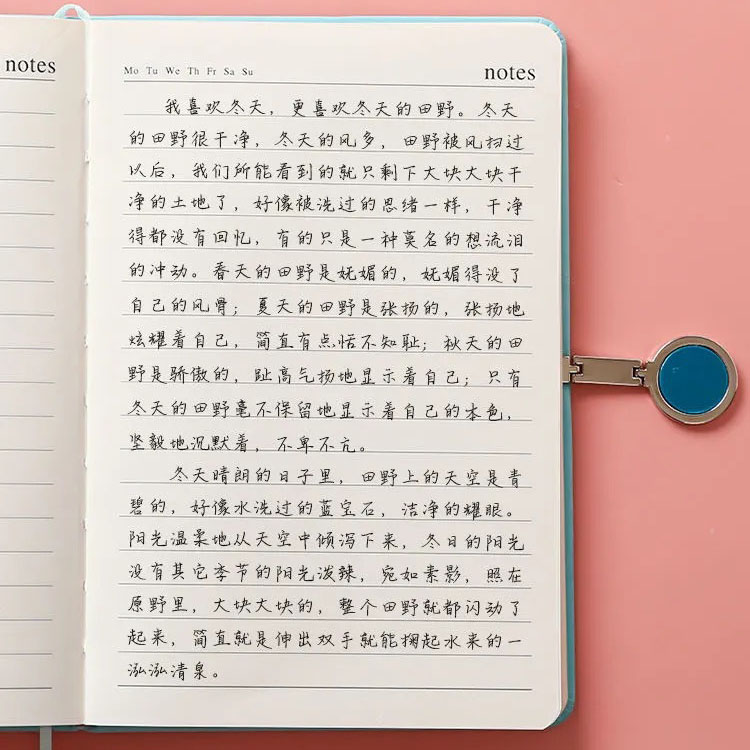 notes
Mo Tu We Th Fr Sa Su
notes
我喜欢冬天，更喜欢冬天的田野。冬天
的田野很干净，冬天的风多，田野被风扫过
以后，我们所能看到的就只剩下大块大块干
净的土地了，好像被洗过的思绪一样，干净
得都没有回忆，有的只是一种莫名的想流泪
的冲动。春天的田野是妩媚的，妩媚得没了
自己的风骨；夏天的田野是张扬的，张扬地
炫耀着自己，简直有点恬不知耻；秋天的田
野是骄傲的，趾高气扬地显示着自己；只有
冬天的田野毫不保留地显示着自己的本色，
坚毅地沉默着，不卑不亢。
冬天晴朗的日子里，田野上的天空是青
碧的，好像水洗过的蓝宝石，洁净的耀眼。
阳光温柔地从天空中倾泻下来，冬日的阳光
没有其它季节的阳光泼辣，宛如素影，照在
原野里，大块大块的，整个田野就都闪动了
起来，简直就是伸出双手就能掬起水来的一
泓泓清泉。